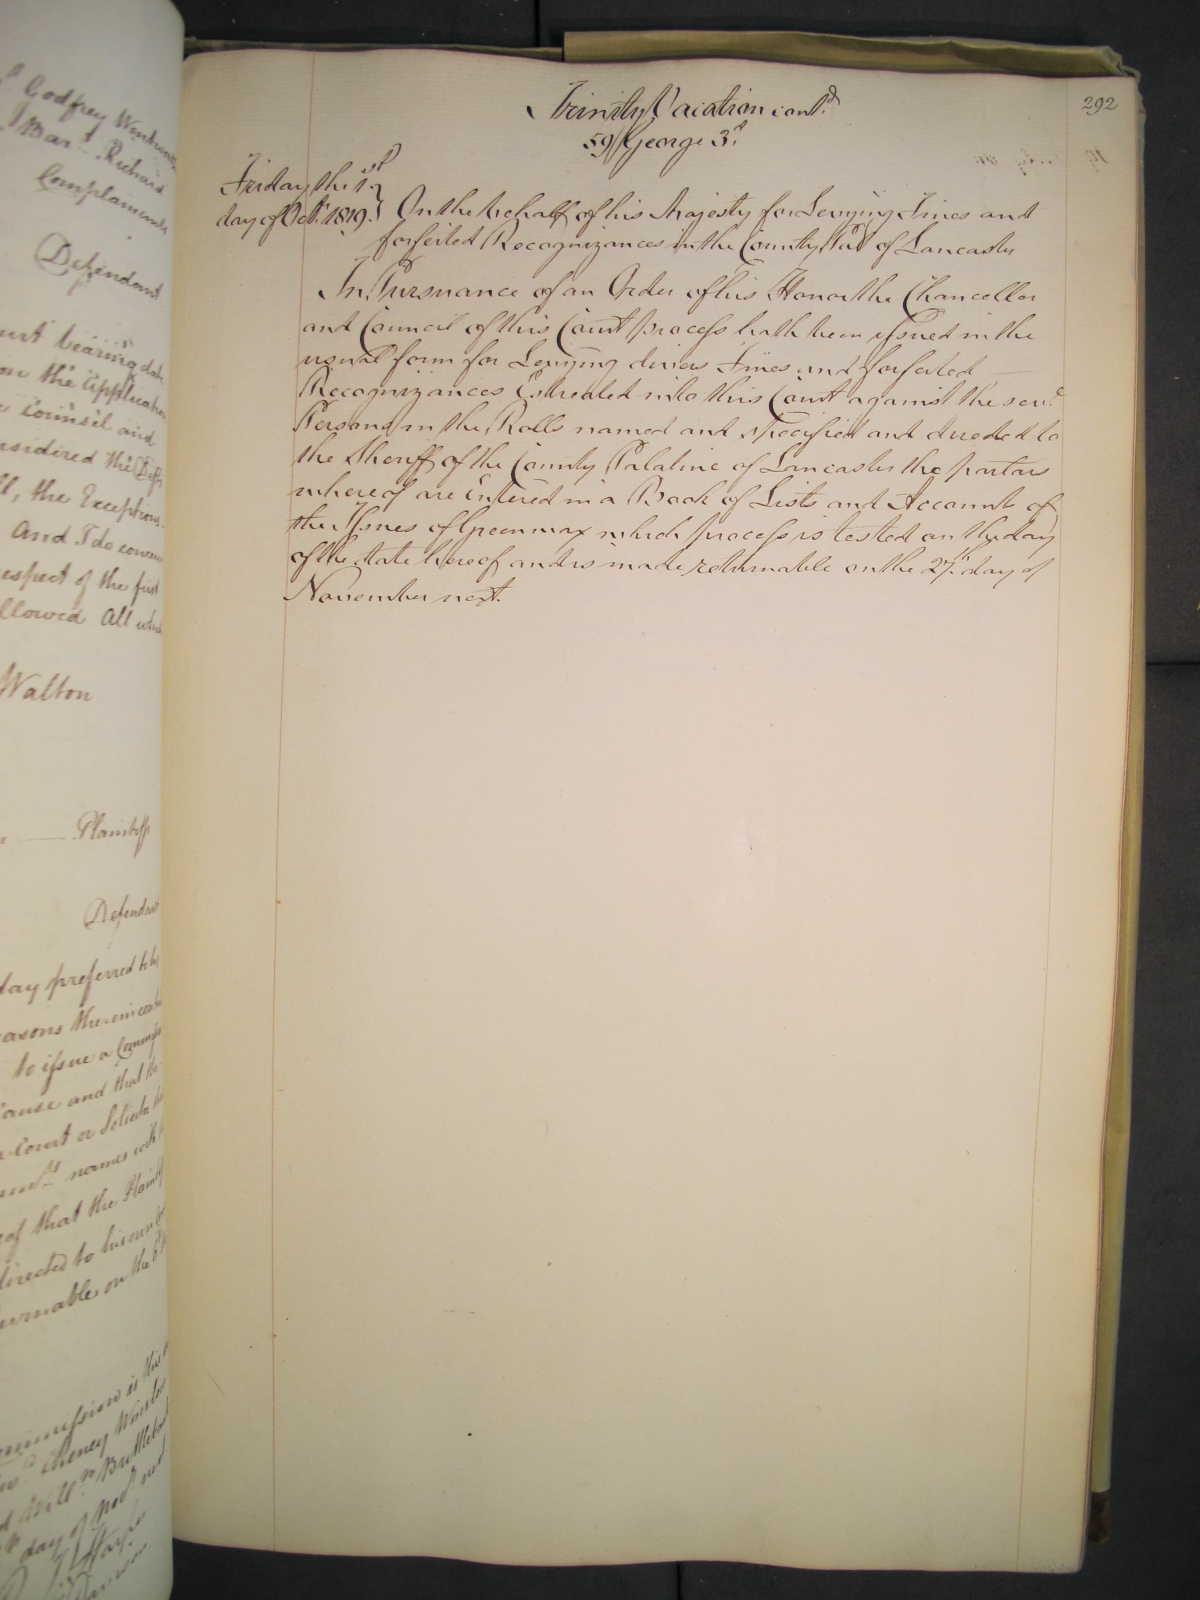 292
Trinity Vacation cont.d
59 George 3.d
Friday the 1st
day of Oct.r 1819.
On the behalf of his Majesty for Levying Fines and
forfeited Recognizances in the County Pal of Lancaster
In Pursuance of an Order of his Honor the Chancellor
and Council of this Court process hath been issued in the
usual form for Levying divers Fines and forfeited
Recognizances Estreated into this Court against the sev.l
Persons in the Rolls named and specified and directed to
the Sheriff of the County Palatine of Lancaster the partars
whereof are Entered in a Book of Lists and Accounts of
the Issues of Greenwax which process is tested on the day
of the date hereof and is made returnable on the 27.th day of
November next.
Godfrey Wentworth
Bar.t Richard
Complainants
Defendant
bearing date
on the Application
Counsel and
the Defts
the Exceptions
And I do
respect of the first
All
Walton
Plaintiffs
Defendant
day preferred to
therein
to issue a
Cause and that
Court or
names with
of that the
directed to his own
on the
Commission is this
Money
Will.m
day of Nov.r next